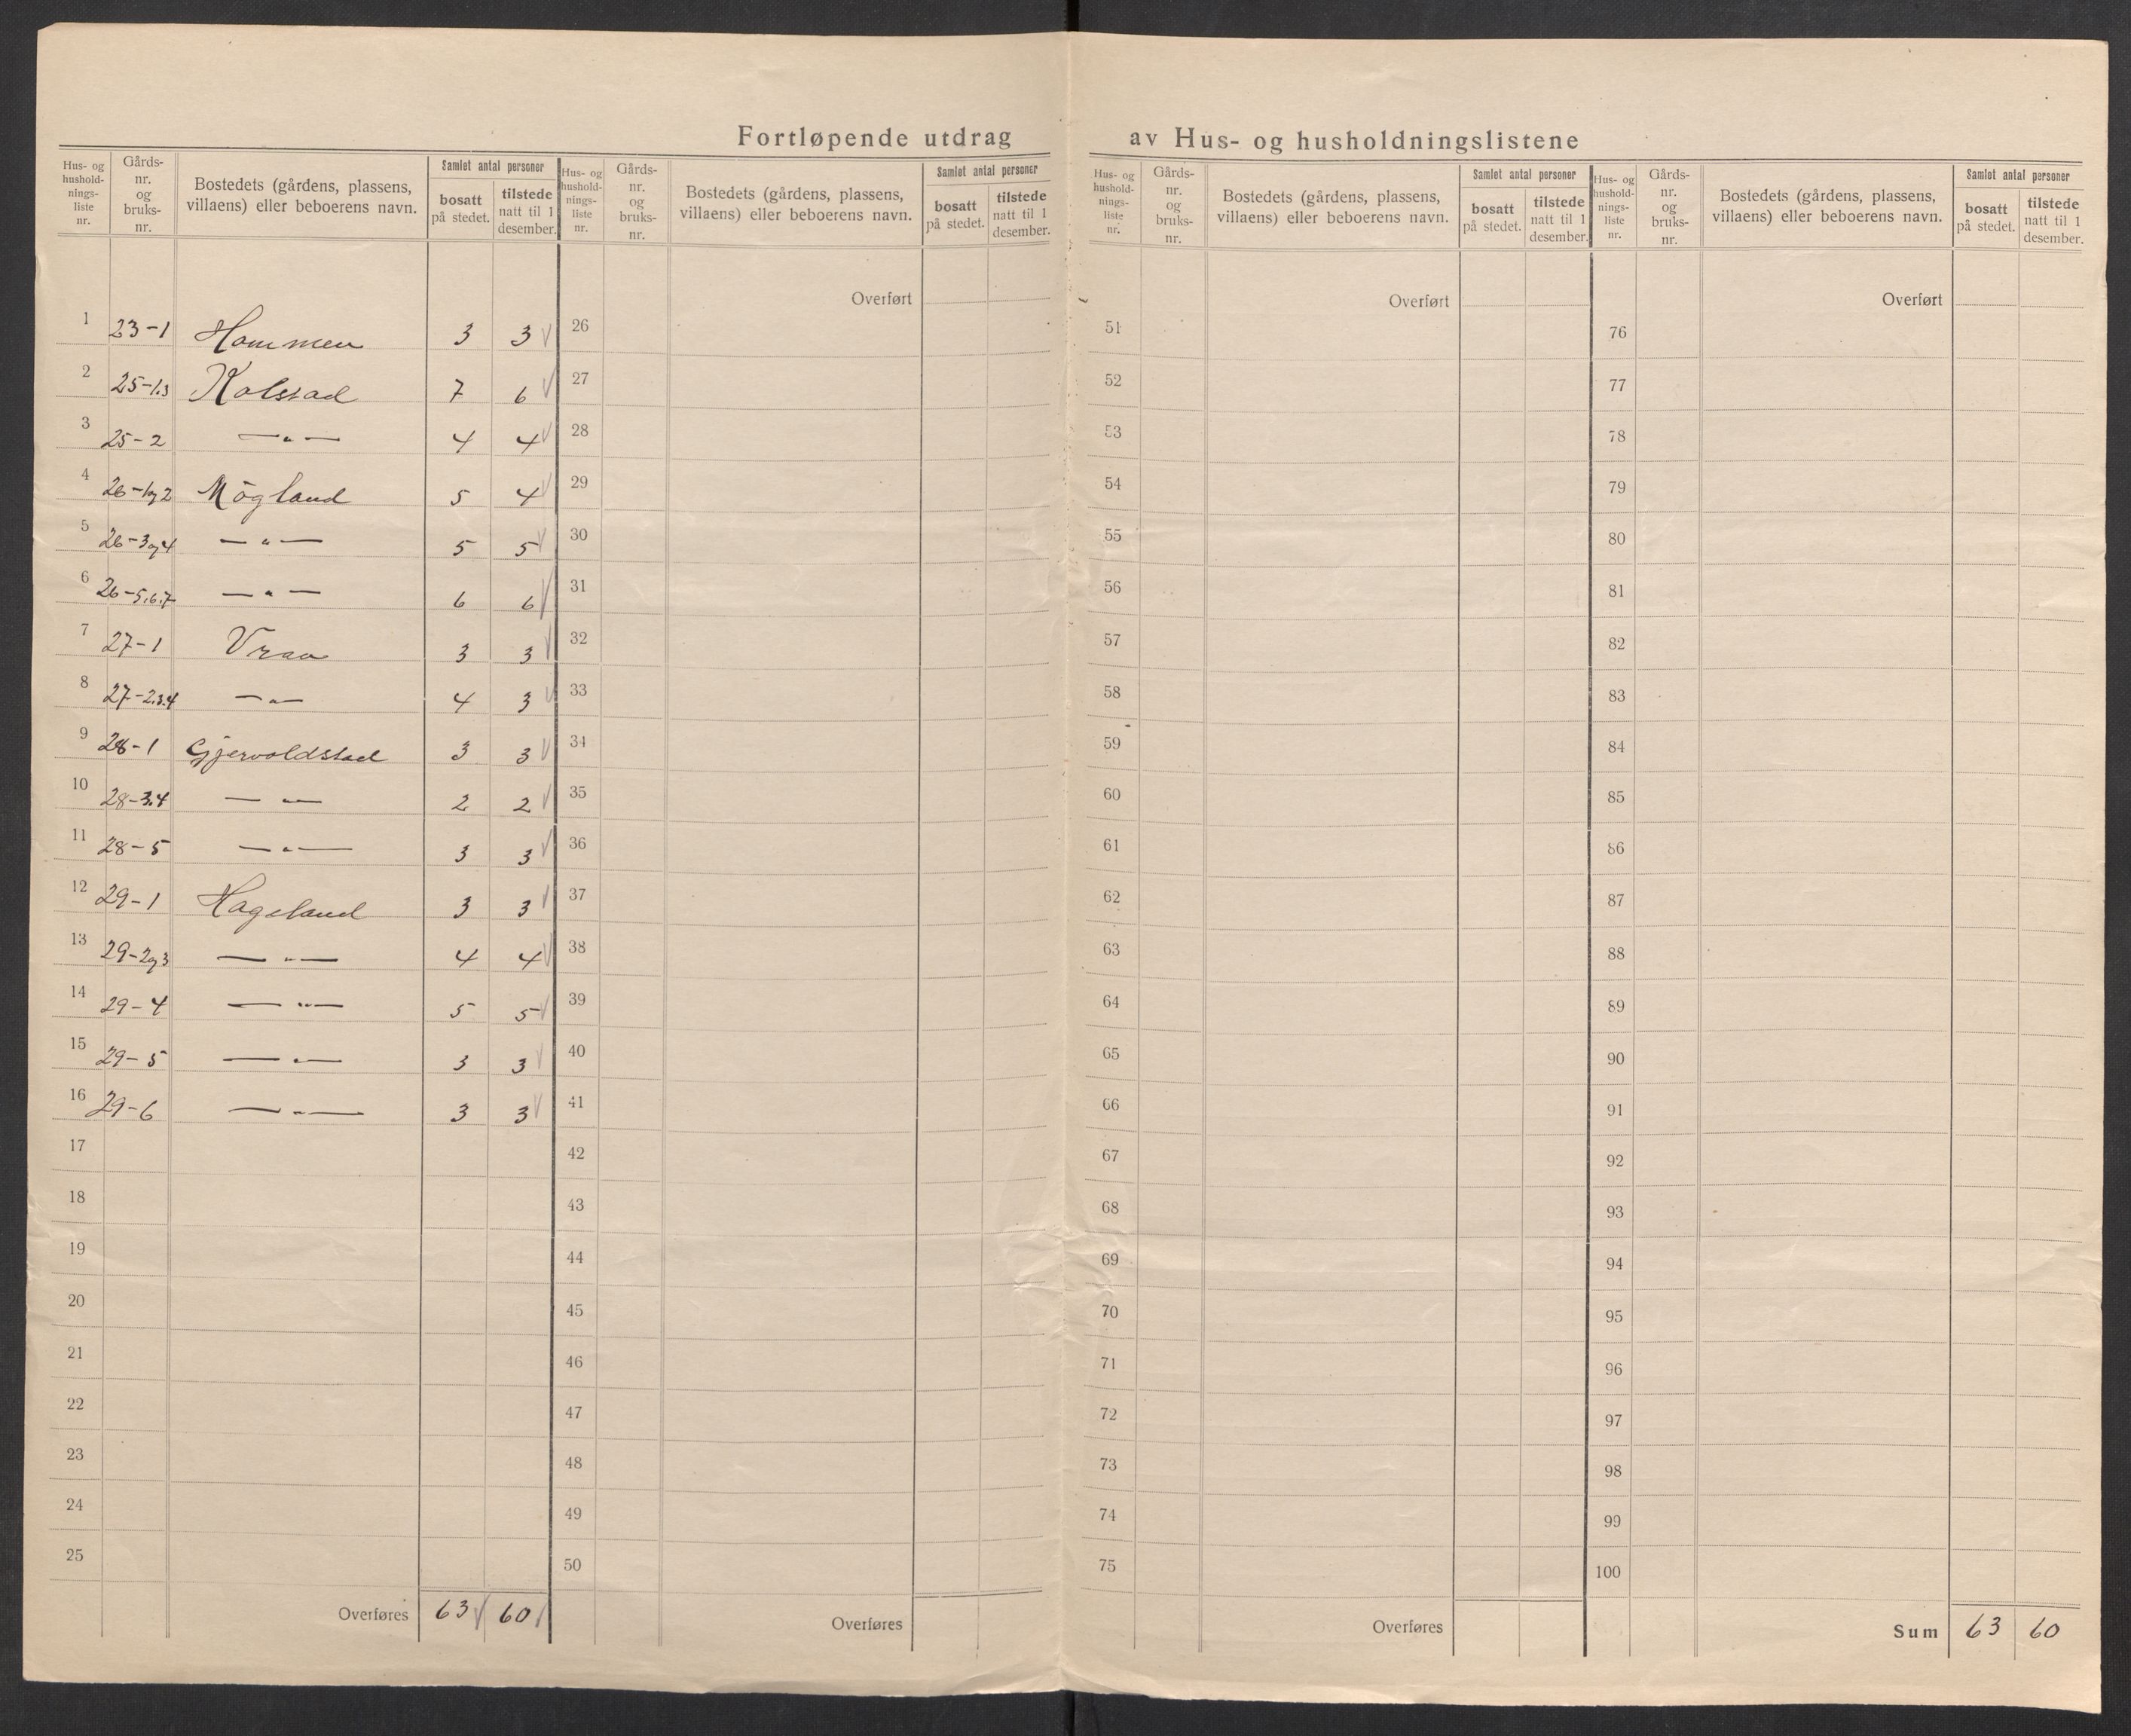 Fortløpende utdrag av Hus- og husholdningslistene
Hus- og hushold-nings-liste nr. | Gårds-nr. og bruks-nr. | Bostedets (gårdens, plassens, villaens) eller beboerens navn. | Samlet antal personer | bosatt på stedet. | tilstede natt til 1 desember.
Hus- og hushold-nings-liste nr. | Gårds-nr. og bruks-nr. | Bostedets (gårdens, plassens, villaens) eller beboerens navn. | Samlet antal personer | bosatt på stedet. | tilstede natt til 1 desember.
Hus- og hushold-nings-liste nr. | Gårds-nr. og bruks-nr. | Bostedets (gårdens, plassens, villaens) eller beboerens navn. | Samlet antal personer | bosatt på stedet. | tilstede natt til 1 desember.
Hus- og hushold-nings-liste nr. | Gårds-nr. og bruks-nr. | Bostedets (gårdens, plassens, villaens) eller beboerens navn. | Samlet antal personer | bosatt på stedet. | tilstede natt til 1 desember.
1 23-1 Hommen 3 3
2 25-1.3 Kolstad 7 6
3 25-2 —"— 4 4
4 26-1og2 Mögland 5 4
5 26-3og4 —"— 5 5
6 26-5.6.7 —"— 6 6
7 27-1 Vraa 3 3
8 27-2.3.4 —"— 4 3
9 28-1 Gjervoldstad 3 3
10 28-3.4 —"— 2 2
11 28-5 —"— 3 3
12 29-1 Hageland 3 3
13 29-2og3 —"— 4 4
14 29-4 —"— 5 5
15 29-5 —"— 3 3
16 29-6 —"— 3 3
17
18
19
20
21
22
23
24
25
Overføres 63 60
Overført
26
27
28
29
30
31
32
33
34
35
36
37
38
39
40
41
42
43
44
45
46
47
48
49
50
Overføres
Overført
51
52
53
54
55
56
57
58
59
60
61
62
63
64
65
66
67
68
69
70
71
72
73
74
75
Overføres
Overført
76
77
78
79
80
81
82
83
84
85
86
87
88
89
90
91
92
93
94
95
96
97
98
99
100
Sum 63 60